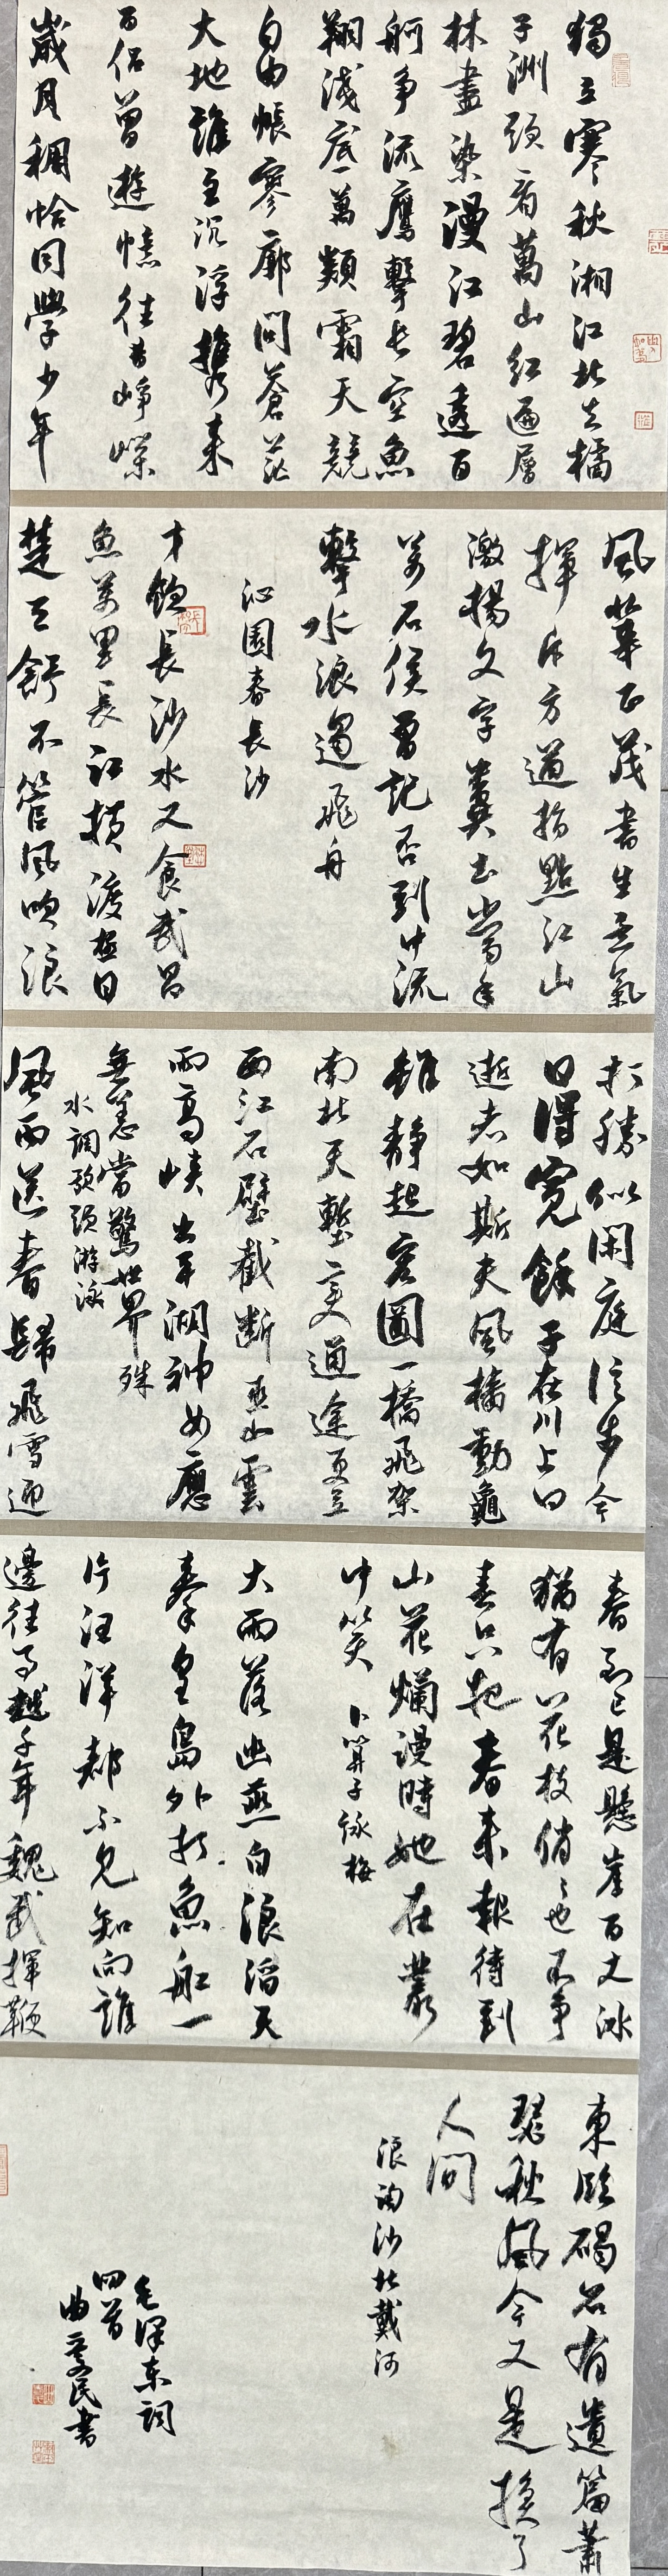 獨立寒秋湘江北去橘
子洲頭看萬山紅遍層
林盡染漫江碧透百
舸爭流鷹擊長空魚
翔淺底萬類霜天競
自由悵寥廓問蒼茫
大地誰主沉浮攜來
百侶曾遊憶往昔崢嶸
歲月稠恰同學少年
風華正茂書生意氣
揮斥方遒指點江山
激揚文字糞土當年
萬戶侯曾記否到中流
擊水浪遏飛舟
沁園春長沙
才飲長沙水又食武昌
魚萬里長江橫渡極目
楚天舒不管風吹浪
打勝似閑庭信步今
日得寬餘子在川上曰
逝者如斯夫風檣動龜
蛇靜起宏圖一橋飛架
南北天塹變通途更立
西江石壁截斷巫山雲
雨高峽出平湖神女應
無恙當驚世界殊
水調歌頭游泳
風雨送春歸飛雪迎
春到已是懸崖百丈冰
猶有花枝俏俏也不爭
春只把春來報待到
山花爛漫時她在叢
中笑 卜算子詠梅
大雨落幽燕白浪滔天
秦皇島外打魚船一
片汪洋都不見知向誰
邊往事越千年魏武揮鞭
東臨碣石有遺篇蕭
瑟秋風今又是換了
人間
浪淘沙北戴河
毛澤東詞
四首
曲慶民書